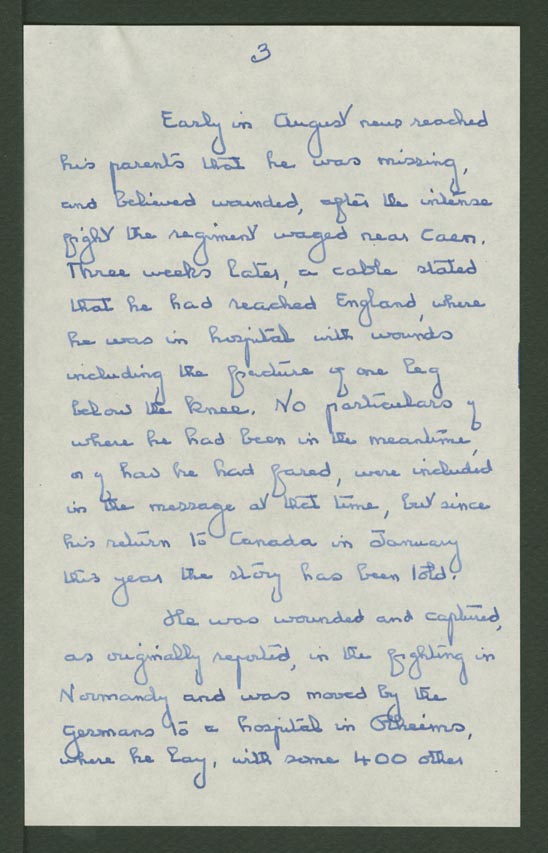 3
Early in August news reached
his parents that he was missing,
and believed wounded, after the intense
fight the regiment waged near Caen.
Three weeks later, a cable stated
that he had reached England, where
he was in hospital with wounds
including the fracture of one leg
below the knee. No particulars of
where he had been in the meantime,
or of how he had fared, were included
in the message at that time, but since
his return to Canada in January
this year the story has been told.
He was wounded and captured,
as originally reported, in the fighting in
Normandy and was moved by the
Germans to a hospital in Rheims,
where he lay, with some 400 other